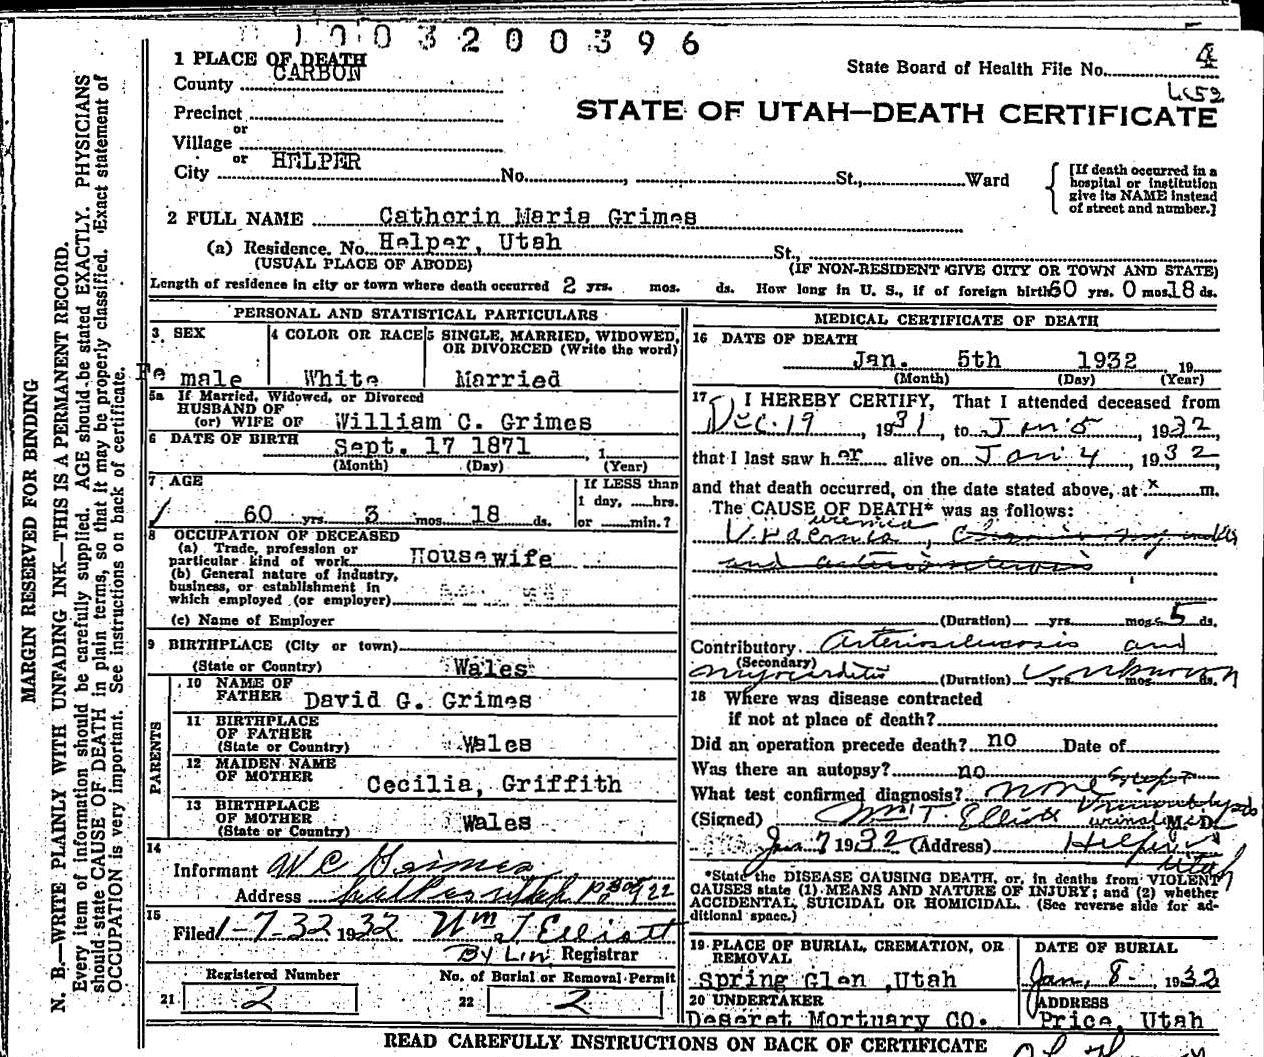 1003200396
4
1 PLACE OF DEATH
CARBON
County
State Board of Health File No.
Precinct
or
STATE OF UTAH—DEATH CERTIFICATE
Village
or
HELPER
City No. , St., Ward
[If death occurred in a
hospital or institution
give its NAME instead
of street and number.]
2 FULL NAME Cathorin Maria Grimes
(a) Residence. No. Helper, Utah St.,
(USUAL PLACE OF ABODE) (IF NON-RESIDENT GIVE CITY OR TOWN AND STATE)
Length of residence in city or town where death occurred 2 yrs. mos. ds. How long in U. S., if of foreign birth 60 yrs. 0 mos. 18 ds.
PERSONAL AND STATISTICAL PARTICULARS
3 SEX
Female
4 COLOR OR RACE
White
5 SINGLE, MARRIED, WIDOWED,
OR DIVORCED (Write the word)
Married
5a If Married, Widowed, or Divorced
HUSBAND OF
(or) WIFE OF William C. Grimes
6 DATE OF BIRTH Sept. 17 1871 , 1
(Month) (Day) (Year)
7 AGE
60 yrs 3 mos 18 ds.
If LESS than
1 day, hrs.
or min.?
8 OCCUPATION OF DECEASED
(a) Trade, profession or
particular kind of work Housewife
(b) General nature of industry,
business, or establishment in
which employed (or employer)
(c) Name of Employer
9 BIRTHPLACE (City or town)
(State or Country) Wales
PARENTS
10 NAME OF
FATHER David G. Grimes
11 BIRTHPLACE
OF FATHER
(State or Country) Wales
12 MAIDEN NAME
OF MOTHER Cecilia, Griffith
13 BIRTHPLACE
OF MOTHER
(State or Country) Wales
14
Informant W C Grimes
Address
15
Filed 1-7-32 1932 Wm T Elliott
By Lin Registrar
Registered Number No. of Burial or Removal Permit
21 2 22 2
MEDICAL CERTIFICATE OF DEATH
16 DATE OF DEATH
Jan. 5th 1932 19
(Month) (Day) (Year)
17 I HEREBY CERTIFY, That I attended deceased from
Dec. 19 , 1931, to Jan 5 , 1932,
that I last saw her alive on Jan 4 , 1932
and that death occurred, on the date stated above, at x m.
The CAUSE OF DEATH* was as follows:
uremia
Uraemia,
and
(Duration) yrs. mos. 5 ds.
Contributory Arteriosclerosis and
(Secondary)
myocarditis (Duration) yrs. mos. ds. Unknown
18 Where was disease contracted
if not at place of death?
Did an operation precede death? no Date of
Was there an autopsy? no
What test confirmed diagnosis? none except
(Signed) Wm T. Elliott M. D.
Jan 7 1932 (Address) Helper
Utah
*State the DISEASE CAUSING DEATH, or, in deaths from VIOLENT
CAUSES state (1) MEANS AND NATURE OF INJURY; and (2) whether
ACCIDENTAL, SUICIDAL OR HOMICIDAL. (See reverse side for ad-
ditional space.)
19 PLACE OF BURIAL, CREMATION, OR
REMOVAL
Spring Glen ,Utah
DATE OF BURIAL
Jan, 8 1932
20 UNDERTAKER
Deseret Mortuary CO.
ADDRESS
Price, Utah
READ CAREFULLY INSTRUCTIONS ON BACK OF CERTIFICATE
MARGIN RESERVED FOR BINDING
N. B.—WRITE PLAINLY WITH UNFADING INK—THIS IS A PERMANENT RECORD.
Every item of information should be carefully supplied. AGE should be stated EXACTLY. PHYSICIANS
should state CAUSE OF DEATH in plain terms, so that it may be properly classified. Exact statement of
OCCUPATION is very important. See instructions on back of certificate.